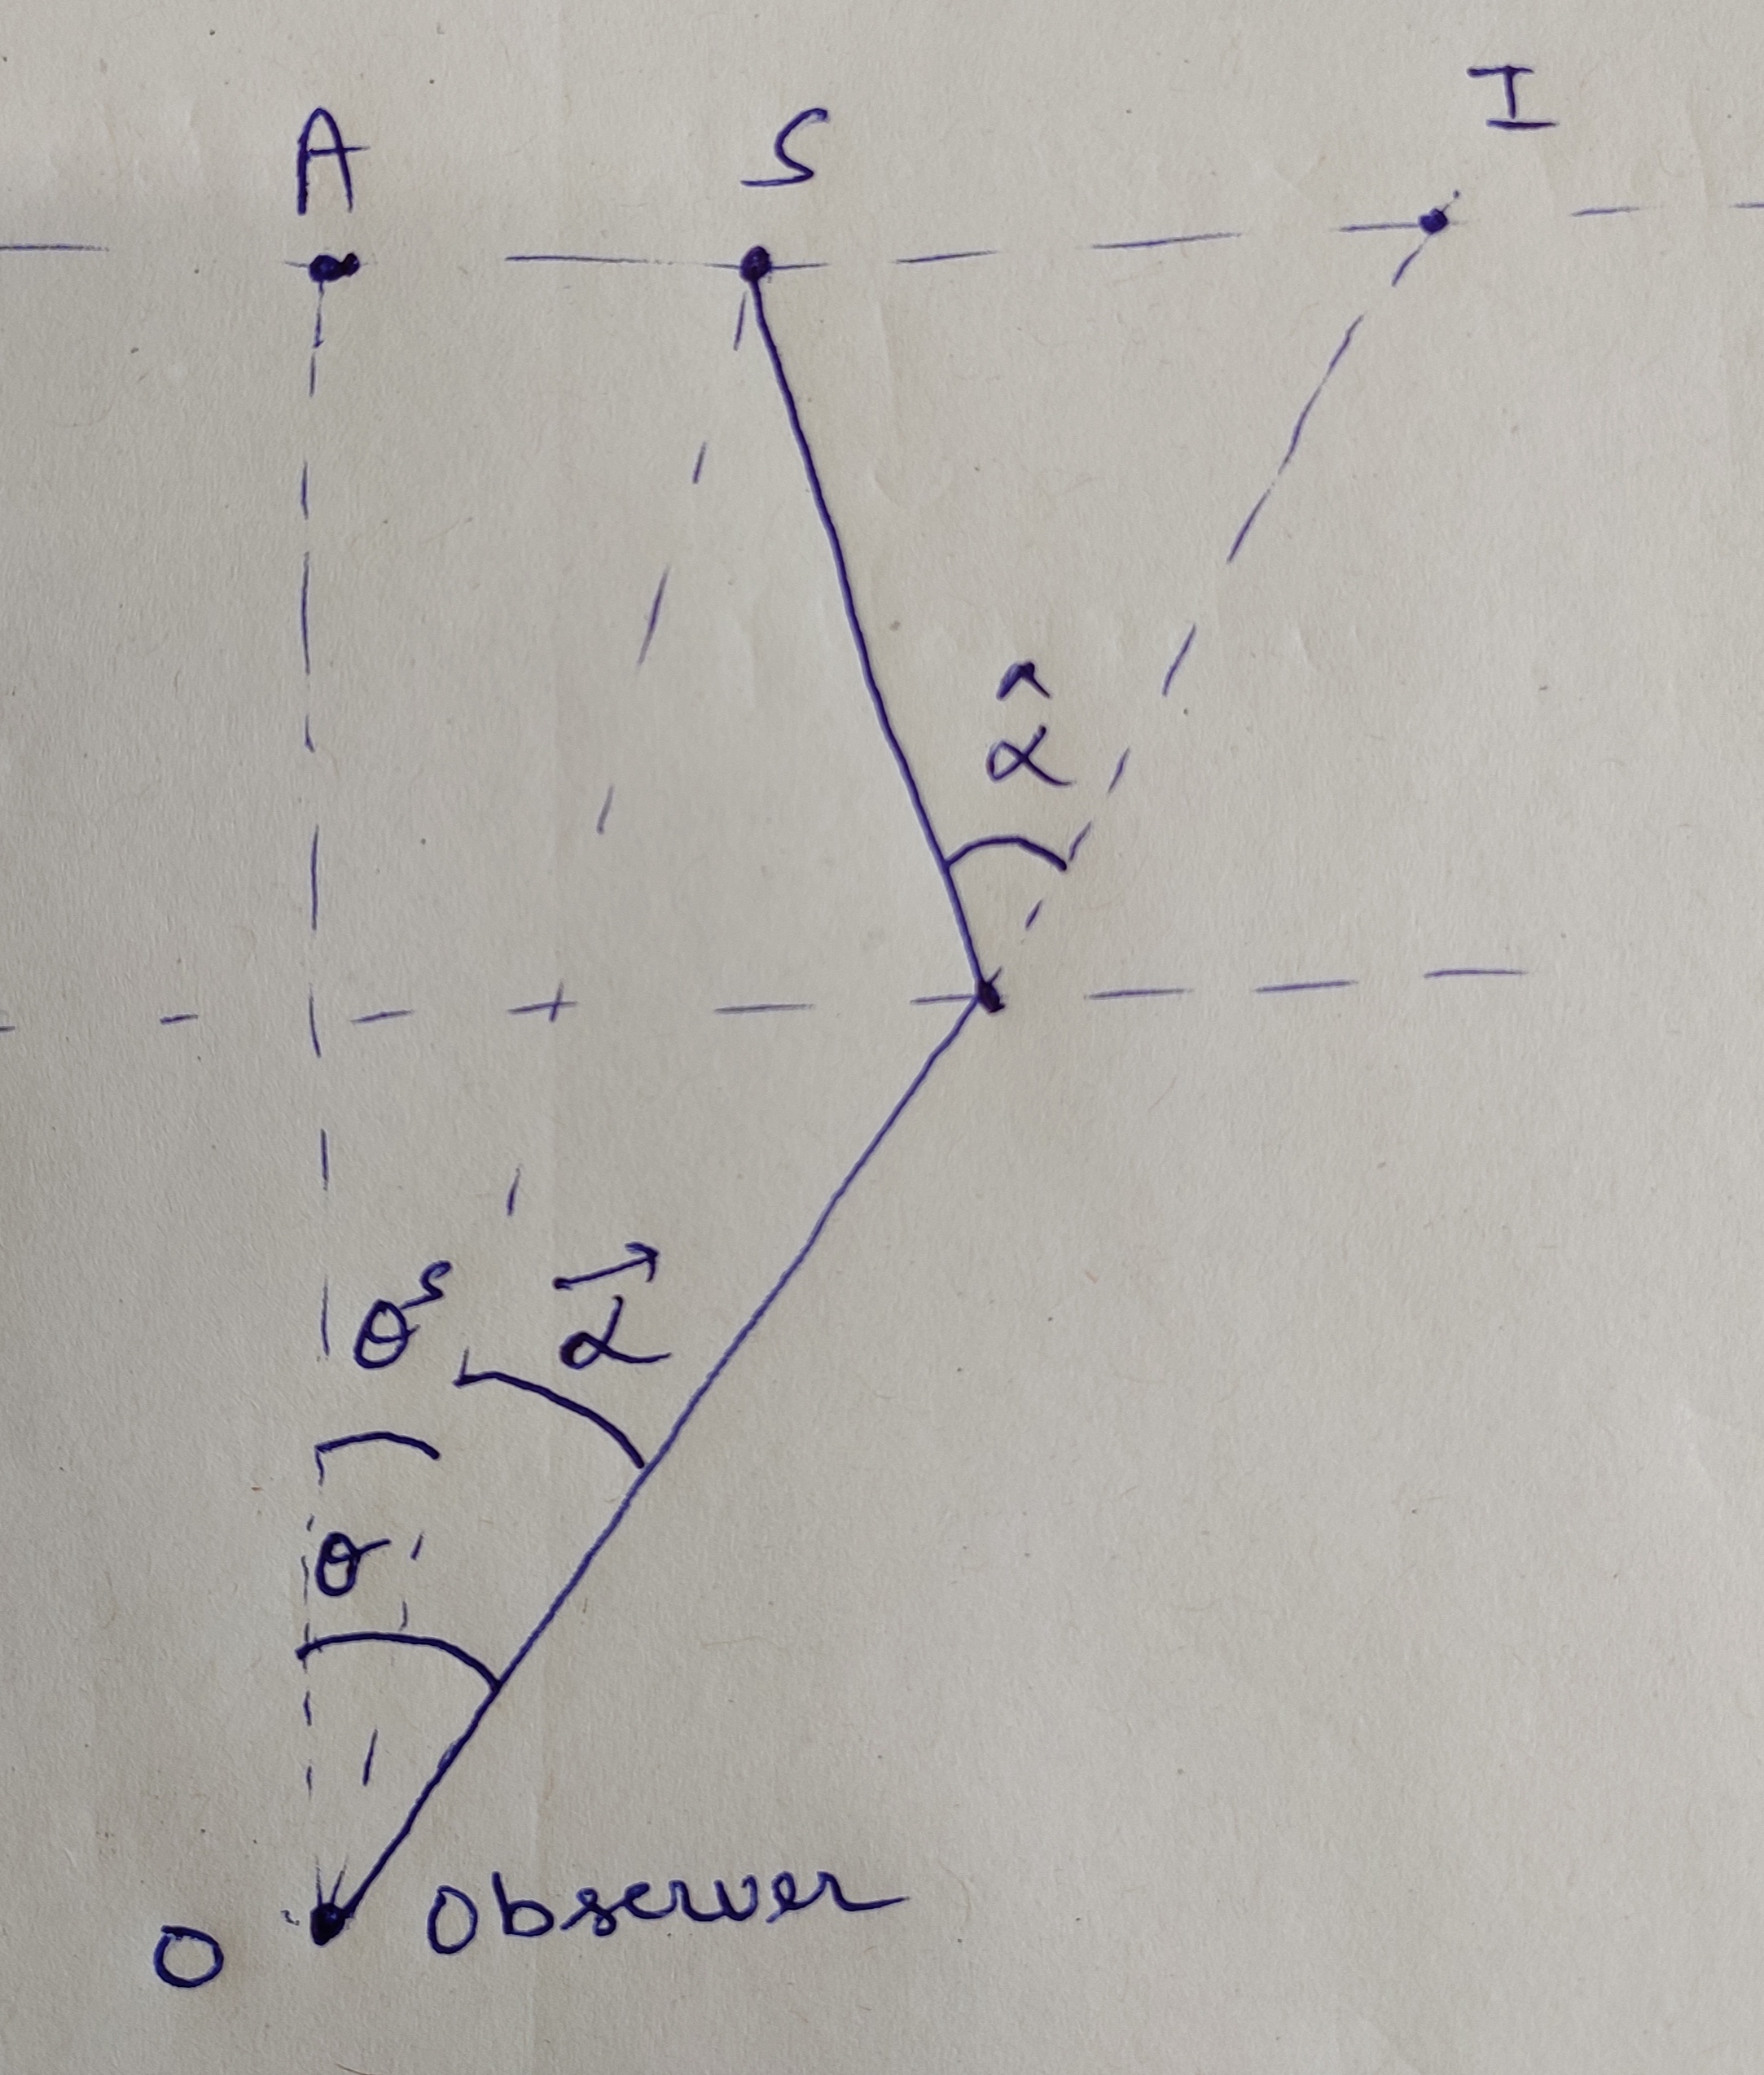 A S I
α̂
θˢ α⃗
θ
O Observer